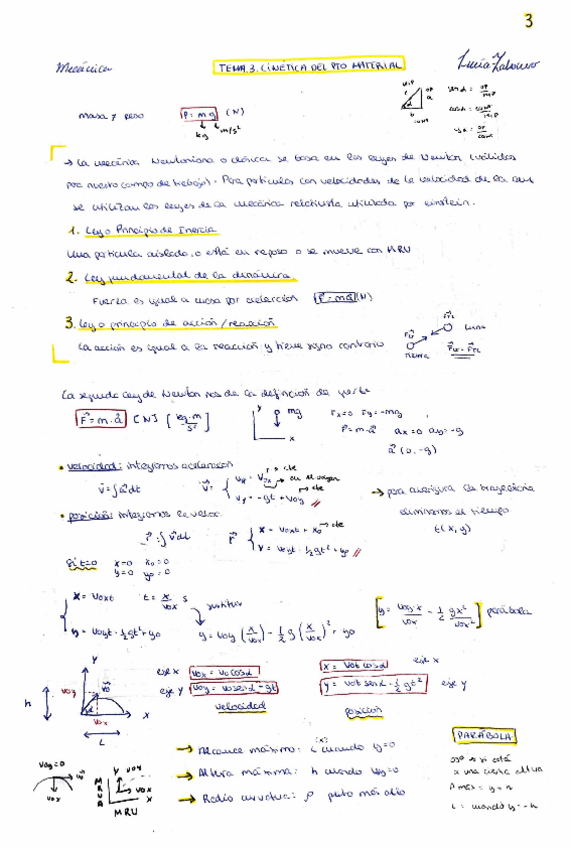 3
Mecánica
TEMA 3. CINÉTICA DEL PTO MATERIAL
masa y peso P = mg (N)
kg m/s²
→ La mecánica Newtoniana o clásica se basa en las leyes de Newton (válidas
por nuestro campo de trabajo). Para partículas con velocidades de la velocidad de la luz
se utilizan las leyes de la mecánica relativista utilizada por einstein.
1. Ley o Principio de Inercia
Una partícula aislada, o está en reposo o se mueve con MRU
2. Ley fundamental de la dinámica
Fuerza es igual a masa por aceleración F = m·a (N)
3. Ley o principio de acción/reacción
La acción es igual a la reacción y tiene signo contrario
Luna
Tierra
La segunda ley de Newton nos da la definición de
F = m·a [N] [kg·m/s²]
y mg
x
Fx=0 Fy=-mg
F=m·a ax=0 ay=-g
a (0,-g)
• velocidad: integramos aceleración
v = ∫a dt
vy = -gt + voy
→ para averiguar la trayectoria
eliminamos el tiempo
t(x,y)
• posición: integramos la veloc.
r = ∫v dt
x = voxt + xo → cte
y = voyt - ½gt² + yo
Si t=0 x=0 xo=0
y=0 yo=0
x = voxt t = x/vox s
sustituir
y = voyt - ½gt² + yo
y = voy (x/vox) - ½ g (x/vox)² + yo
parábola
eje x vox = vo cosα
eje y voy = vo senα - gt
velocidad
x = vot cosα eje x
y = vot senα - ½gt² eje y
posición
h
L
→ Alcance máximo: L cuando y=0
→ Altura máxima: h cuando voy=0
→ Radio curvatura: ρ pto más alto
PARÁBOLA
voy=0
vox
MRUA
MRU
L: cuando y=-h